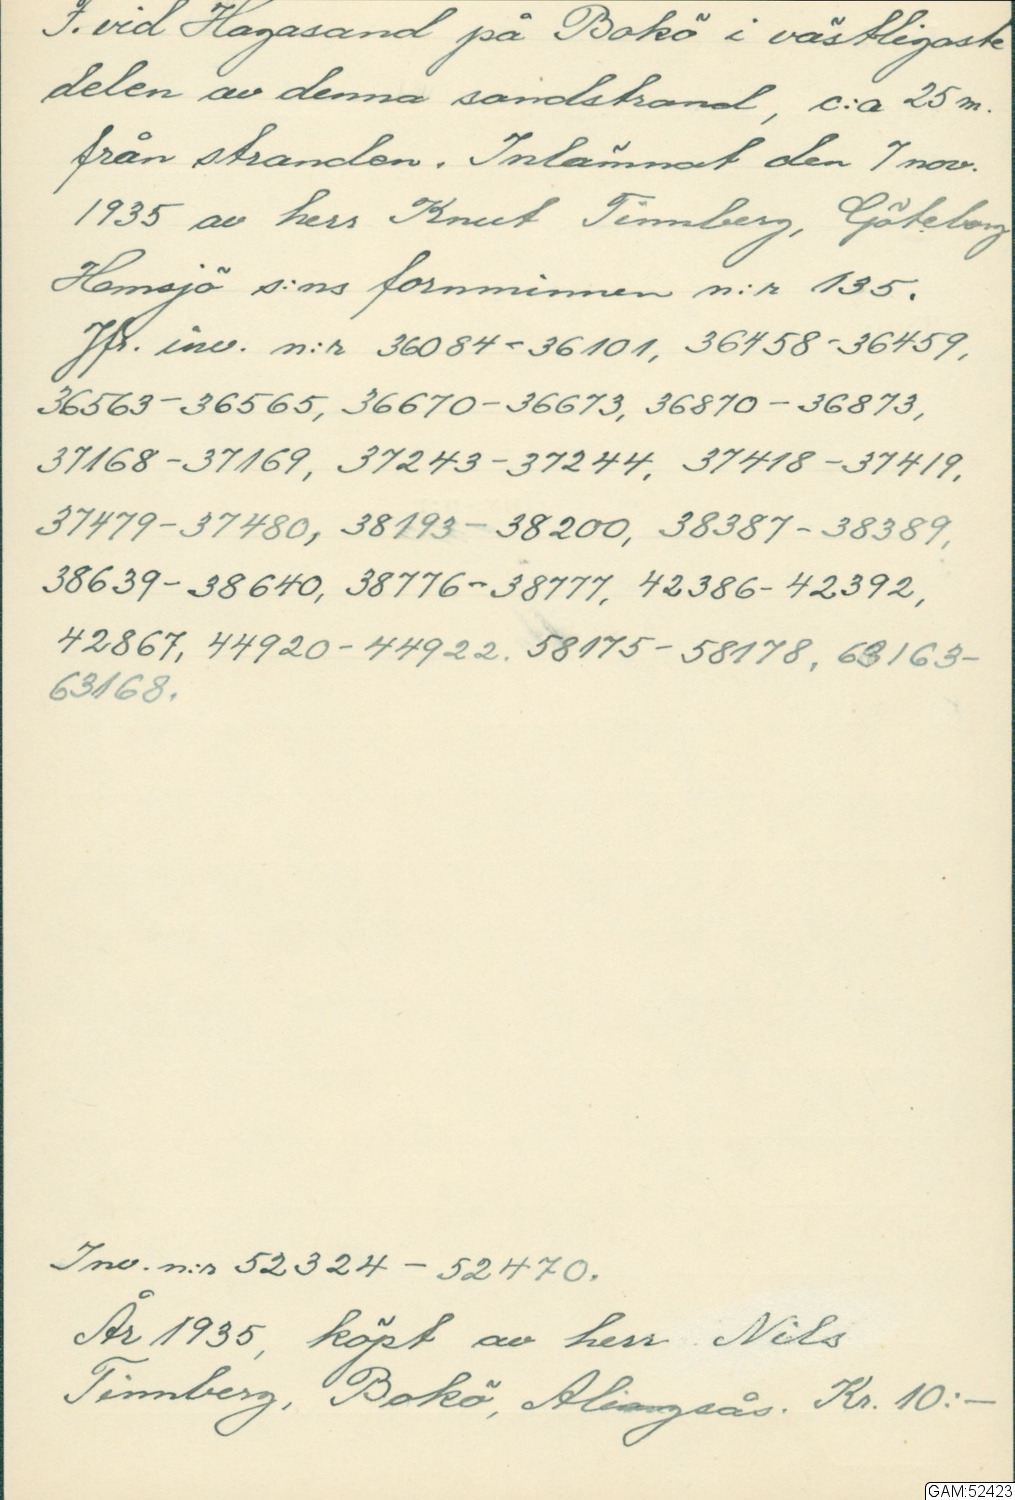 F. vid Hagasand på Bokö i västligaste
delen av denna sandstrand, c:a 25 m.
från stranden. Inlämnat den 7 nov.
1935 av herr Knut Tinnberg, Göteborg
Hemsjö s:ns fornminnen n:r 135.
Jfr. inv. n:r 36084-36101, 36458-36459,
36563-36565, 36670-36673, 36870-36873,
37168-37169, 37243-37244, 37418-37419,
37479-37480, 38193-38200, 38387-38389,
38639-38640, 38776-38777, 42386-42392,
42867, 44920-44922. 58175-58178, 63163-
63168.
Inv. n:r 52324-52470.
År 1935, köpt av herr Nils
Tinnberg, Bokö, Alingsås. Kr. 10:-
GAM:52423